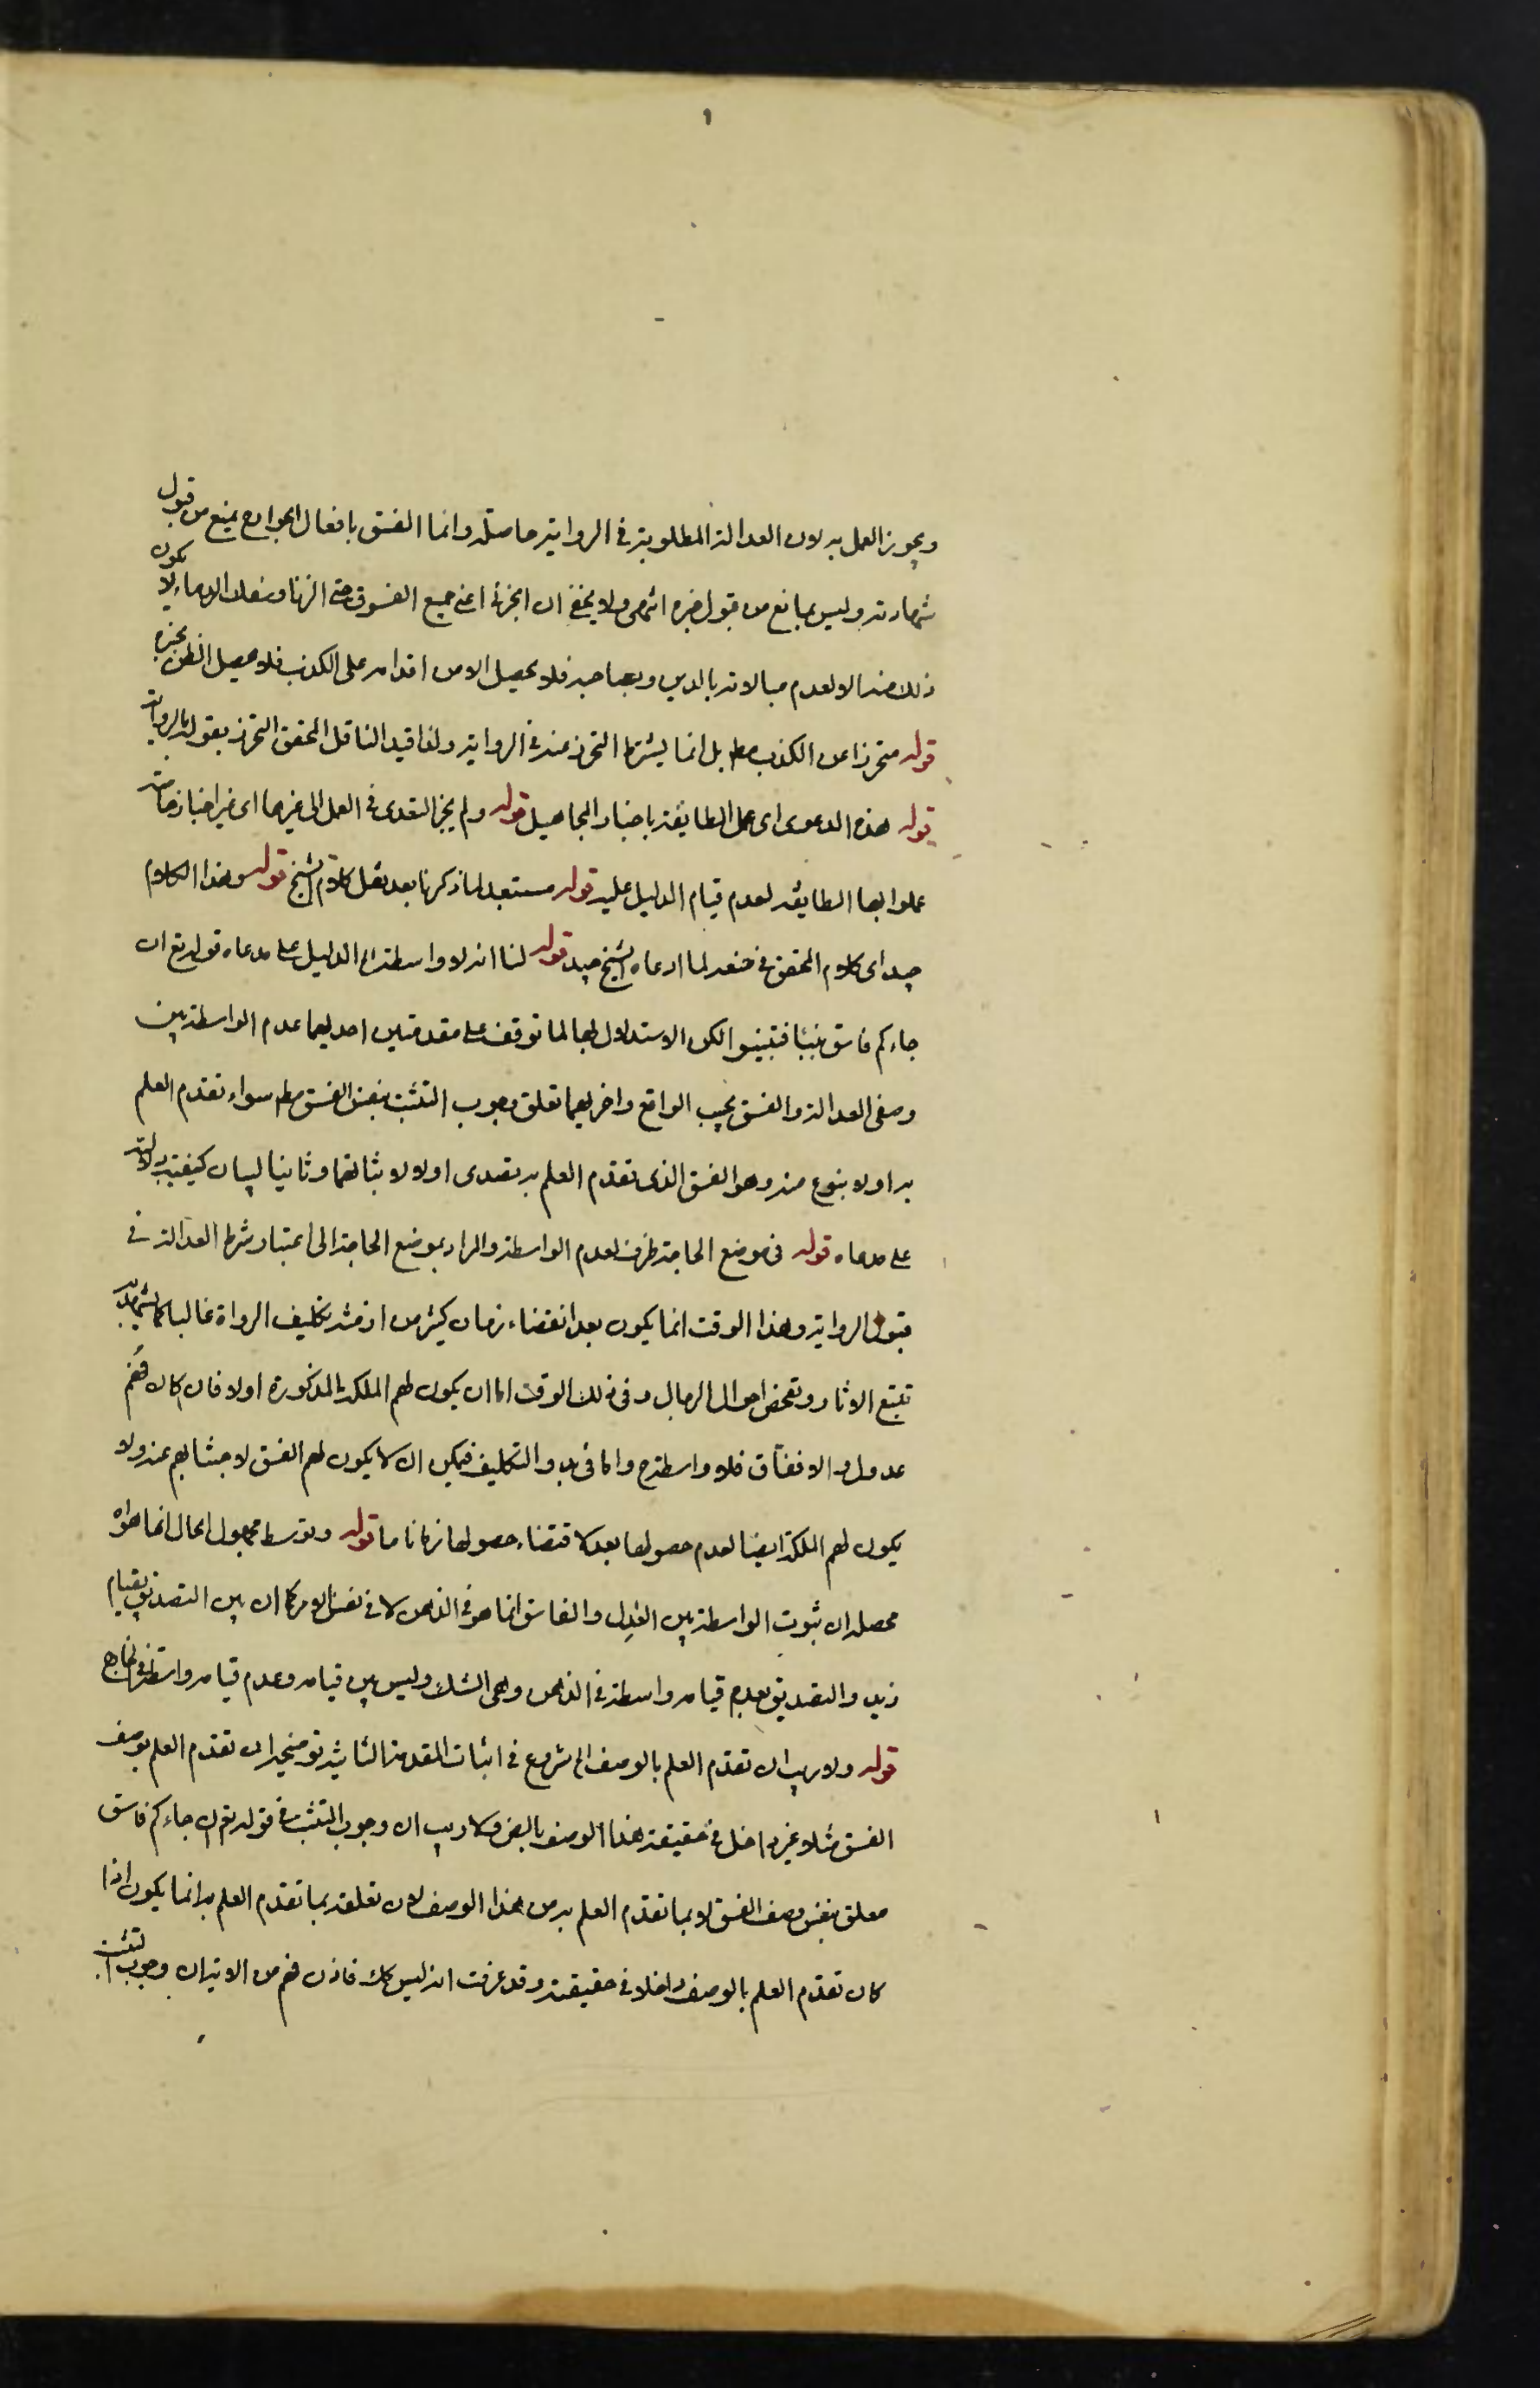 ١
ويجوز العمل به لان العدالة المطلوبة في الرواية حاصلة وانما الفسق بافعال الجوارح يمنع من قبول
شهادته وليس بمانع من قبول خبره انتهى ولا يخفى ان الجرئة اعنى جميع الفسوق حتى الزنا وسفك الدماء لا يكون
ذلك منه الا لعدم مبالاته بالدين وبصاحبه فلا يحصل الامن اقدامه على الكذب فلا يحصل الظن بخبره
قوله متحرزا عن الكذب مط بل انما يشترط التحرز منه في الرواية ولذا قيد الناقل المحقق التحرز بقوله بالرواية
قوله هذه الدعوى اى عمل الطايفة باخبار المجاهيل قوله ولم يجز التعدى في العمل الى غيرها اى غير اخبار خاصة
عملوا بها الطايفة لعدم قيام الدليل عليه قوله مستبعد لما ذكرنا بعد نقل كلام الشيخ قوله وهذا الكلام
جيد اى كلام المحقق في منعه لما ادعاه الشيخ جيد قوله لنا انه لا واسطة الخ الدليل على مدعاه قوله تع ان
جاءكم فاسق بنبأ فتبينوا لكن الاستدلال بها لما توقف على مقدمتين احديهما عدم الواسطة بين
وصفى العدالة والفسق بحسب الواقع واخريهما تعلق وجوب التثبت بنفس الفسق مط سواء تقدم العلم
به اولا بنوع منه وهو الفسق الذى تقدم العلم به تصدى اولا لاثباتهما وثانيا لبيان كيفية دلالته
على مدعاه قوله في موضع الحاجة ظرف لعدم الواسطة والمراد بموضع الحاجة الى اعتبار شرط العدالة في
قبول الرواية وهذا الوقت انما يكون بعد انقضاء زمان كثير من ازمنة تكليف الرواة غالبا كما يشهد به
تتبع الاثار وتفحص احوال الرجال وفي ذلك الوقت اما ان يكون لهم الملكة المذكورة اولا فان كان فهم
عدول والا ففساق فلا واسطة ح واما في بدو التكليف فيمكن ان لا يكون لهم الفسق لاجتنابهم عنه ولا
يكون لهم الملكة ايضا لعدم حصولها بعد لاقتضاء حصولها زمانا ما قوله وتوسط مجهول الحال انما هو اه
محصله ان ثبوت الواسطة بين العدل والفاسق انما هو في الذهن لا في نفس الامر كما ان بين التصديق بقيام
زيد والتصديق بعدم قيامه واسطة في الذهن وهى الشك وليس بين قيامه وعدم قيامه واسطة في الخارج
قوله ولا ريب ان تقدم العلم بالوصف الخ شروع في اثبات المقدمة الثانية توضيحه ان تقدم العلم بوصف
الفسق مثلا غير داخل في حقيقة هذا الوصف بالضرورة ولا ريب ان وجوب التثبت في قوله تع ان جاءكم فاسق
معلق بنفس وصف الفسق لا بما تقدم العلم به من هذا الوصف لان تعلقه بما تقدم العلم به انما يكون اذا
كان تقدم العلم بالوصف داخلا في حقيقته وقد عرفت انه ليس كك فاذن فهم من الاية ان وجوب التثبت